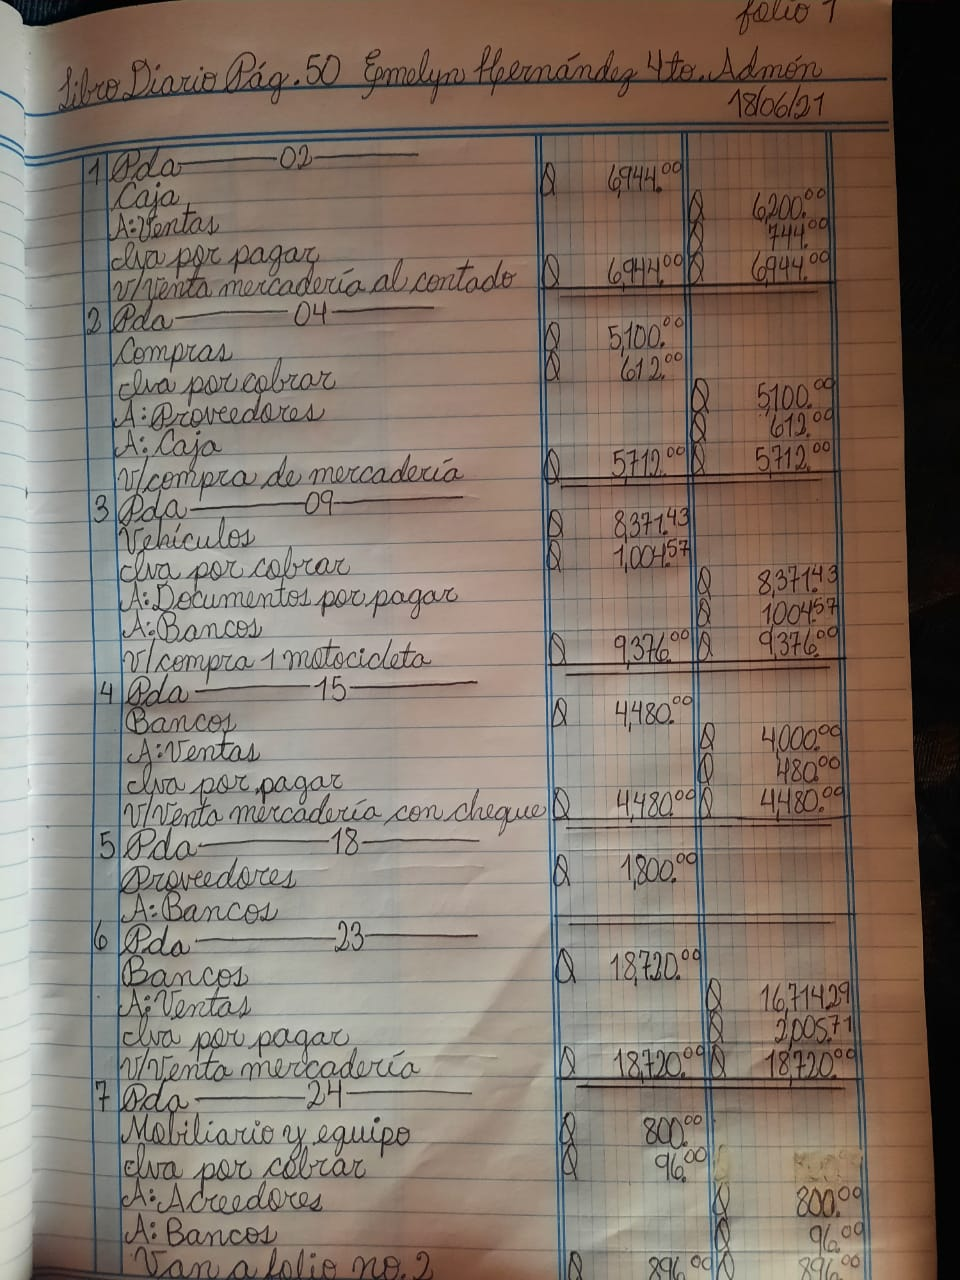 folio 1
Libro Diario Pág. 50 Emelyn Hernández 4to. Admón
18/06/21
1 Pda 02
Caja Q 6,944.00
A: Ventas Q 6,200.00
Iva por pagar Q 744.00
V/Venta mercadería al contado Q 6,944.00 Q 6,944.00
2 Pda 04
Compras Q 5,100.00
Iva por cobrar Q 612.00
A: Proveedores Q 5,100.00
A: Caja Q 612.00
V/compra de mercadería Q 5,712.00 Q 5,712.00
3 Pda 09
Vehículos Q 8,371.43
Iva por cobrar Q 1,004.57
A: Documentos por pagar Q 8,371.43
A: Bancos Q 1004.57
V/compra 1 motocicleta Q 9,376.00 Q 9,376.00
4 Pda 15
Bancos Q 4,480.00
A: Ventas Q 4,000.00
Iva por pagar Q 480.00
V/Venta mercadería con cheque Q 4,480.00 Q 4,480.00
5 Pda 18
Proveedores Q 1,800.00
A: Bancos
6 Pda 23
Bancos Q 18,720.00
A: Ventas Q 16,714.29
Iva por pagar Q 2,005.71
V/Venta mercadería Q 18,720.00 Q 18,720.00
7 Pda 24
Mobiliario y equipo Q 800.00
Iva por cobrar Q 96.00
A: Acreedores Q 800.00
A: Bancos Q 96.00
Van a folio no. 2 Q 896.00 Q 896.00